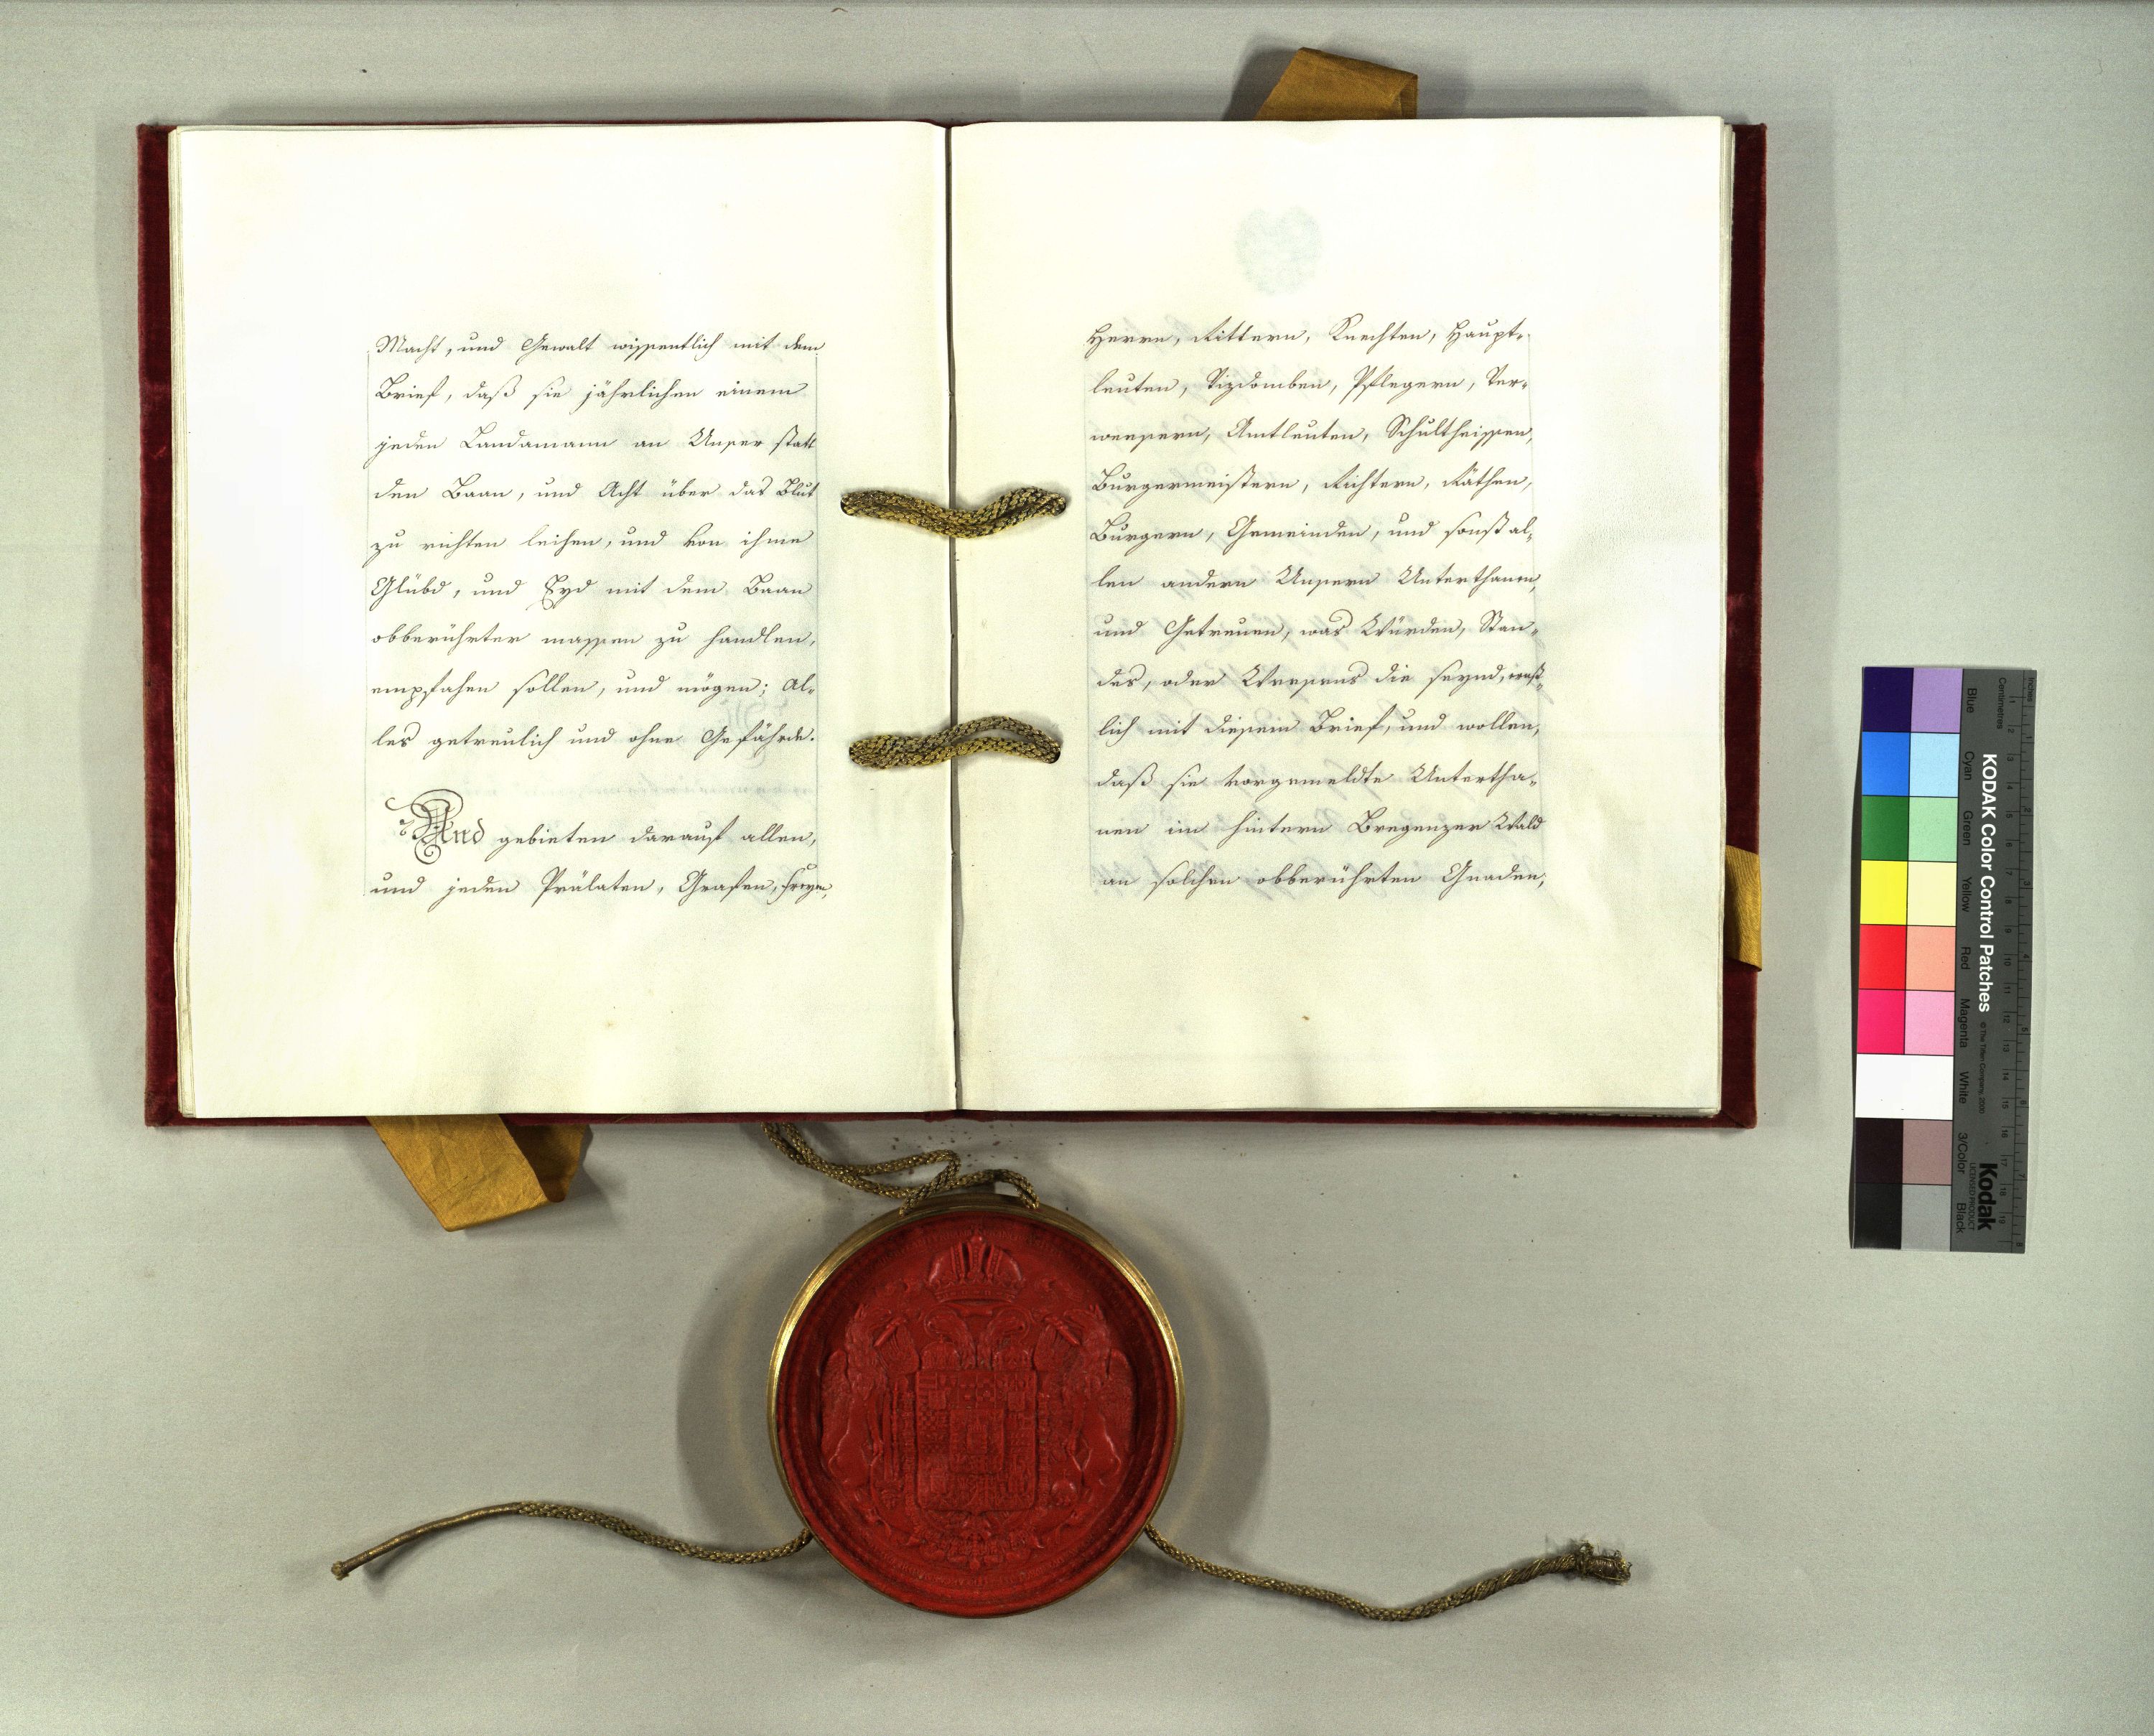 Macht, und Gewalt wissentlich mit dem
Brief, daß sie jährlichen einem
jeden Landamann an Unser statt
den Baan, und Acht über das Blut
zu richten leihen, und von ihme
Glübd, und Eyd mit dem Baan
obberührter massen zu handlen,
empfahen sollen, und mögen; Al-
les getreulich und ohne Gefährde.
Und gebieten darauf allen,
und jeden Prälaten, Grafen, Freyen,
Herren, Rittern, Knechten, Haupt-
leuten, Vizdomben, Pflegern, Ver-
weesern, Amtleuten, Schultheissen,
Burgermeistern, Richtern, Räthen,
Burgern, Gemeinden, und sonst al-
len andern Unsern Unterthanen,
und Getreuen, was Würden, Stan-
des, oder Weesens die seynd, ernst-
lich mit diesem Brief, und wollen,
daß sie vorgemeldte Untertha-
nen im hintern Bregenzer Wald
an solchen obberührten Gnaden,
KODAK Color Control Patches
© The Tiffen Company, 2000
Kodak
LICENSED PRODUCT
Blue
Cyan
Green
Yellow
Red
Magenta
White
3/Color
Black
Inches
Centimetres